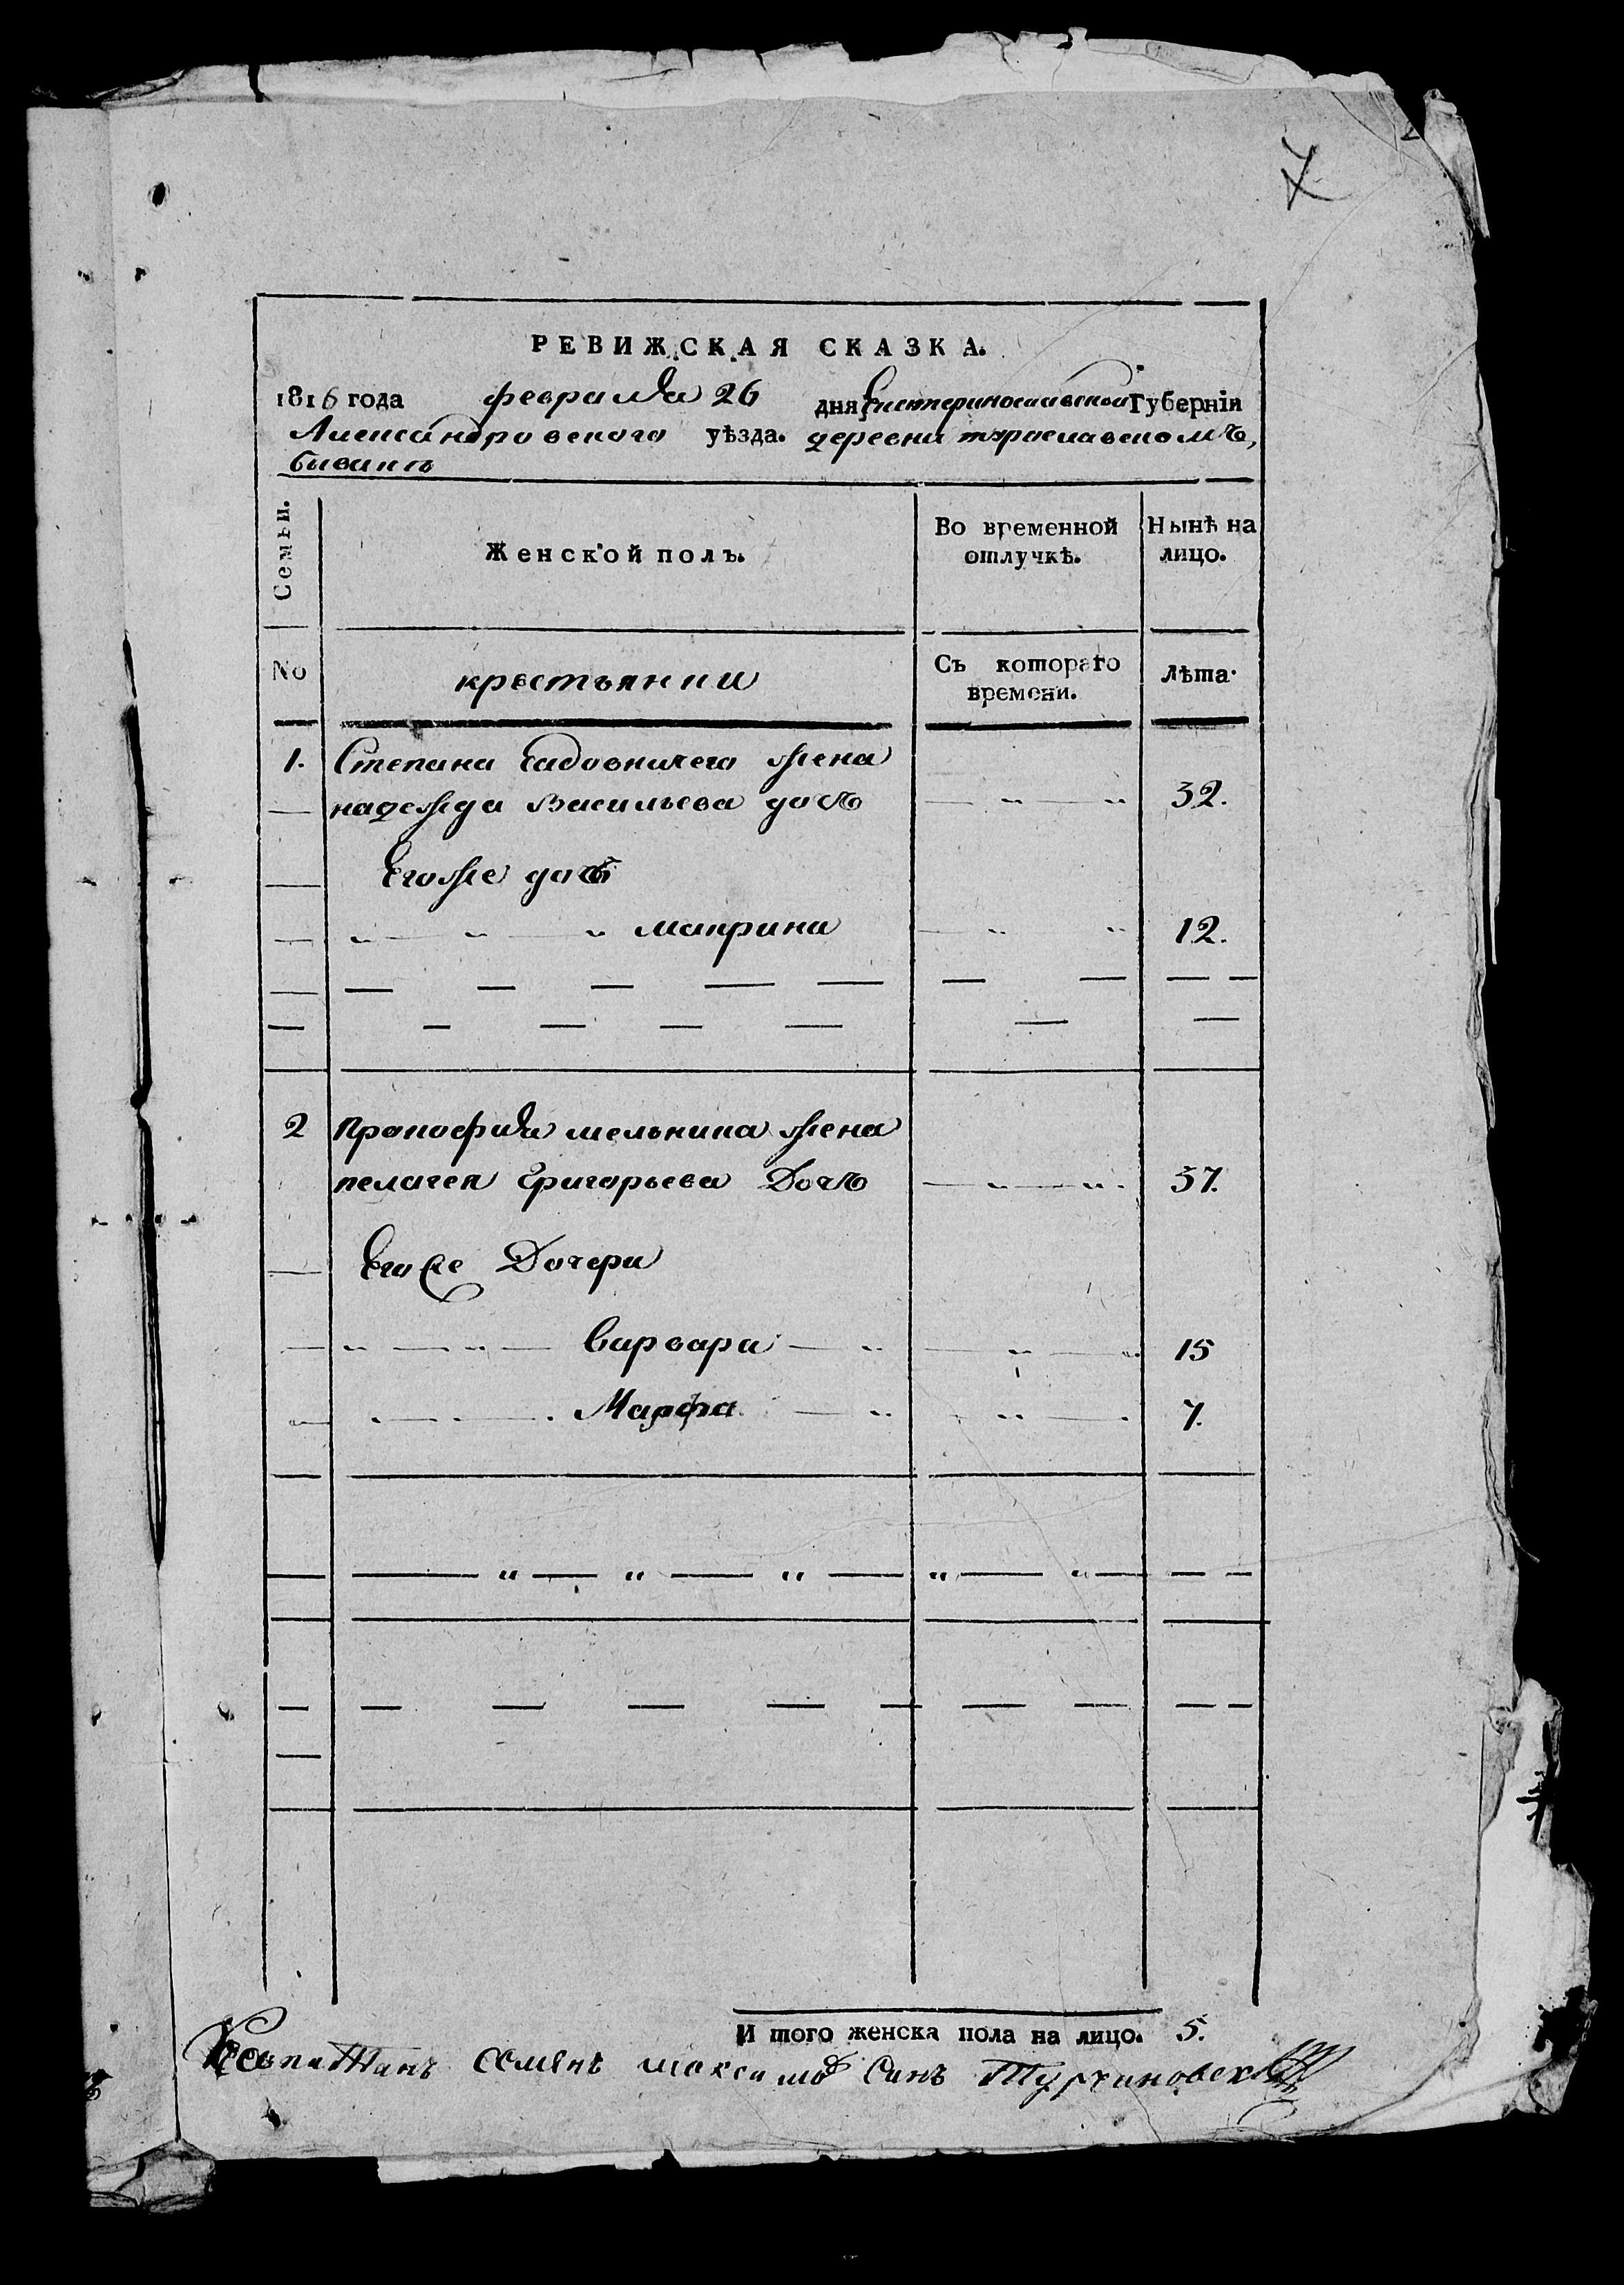 7
РЕВИЖСКАЯ СКАЗКА.
1816 года февраля 26 дня Екатеринославской Губерніи
Александровского уѣзда. деревни
Семьи. Женской полъ. Во временной отлучкѣ. Нынѣ на лицо.
No крестьянки Съ котораго времени. лѣта.
1. Степана Садовничего жена
надежда Васильева дочь 32.
Егоже дочь
макрина 12.
2 Прокофия мельника жена
пелагея Григорьева Дочь 37.
Егоже Дочери
варвара 15
Марфа 7.
И того женска пола на лицо. 5.
Капитанъ семенъ максимов Синъ